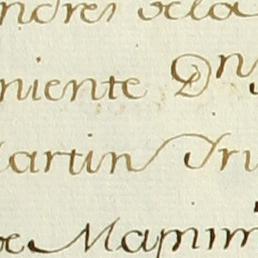 ndres de la
niente Dn
Martin Tru
de Mapim